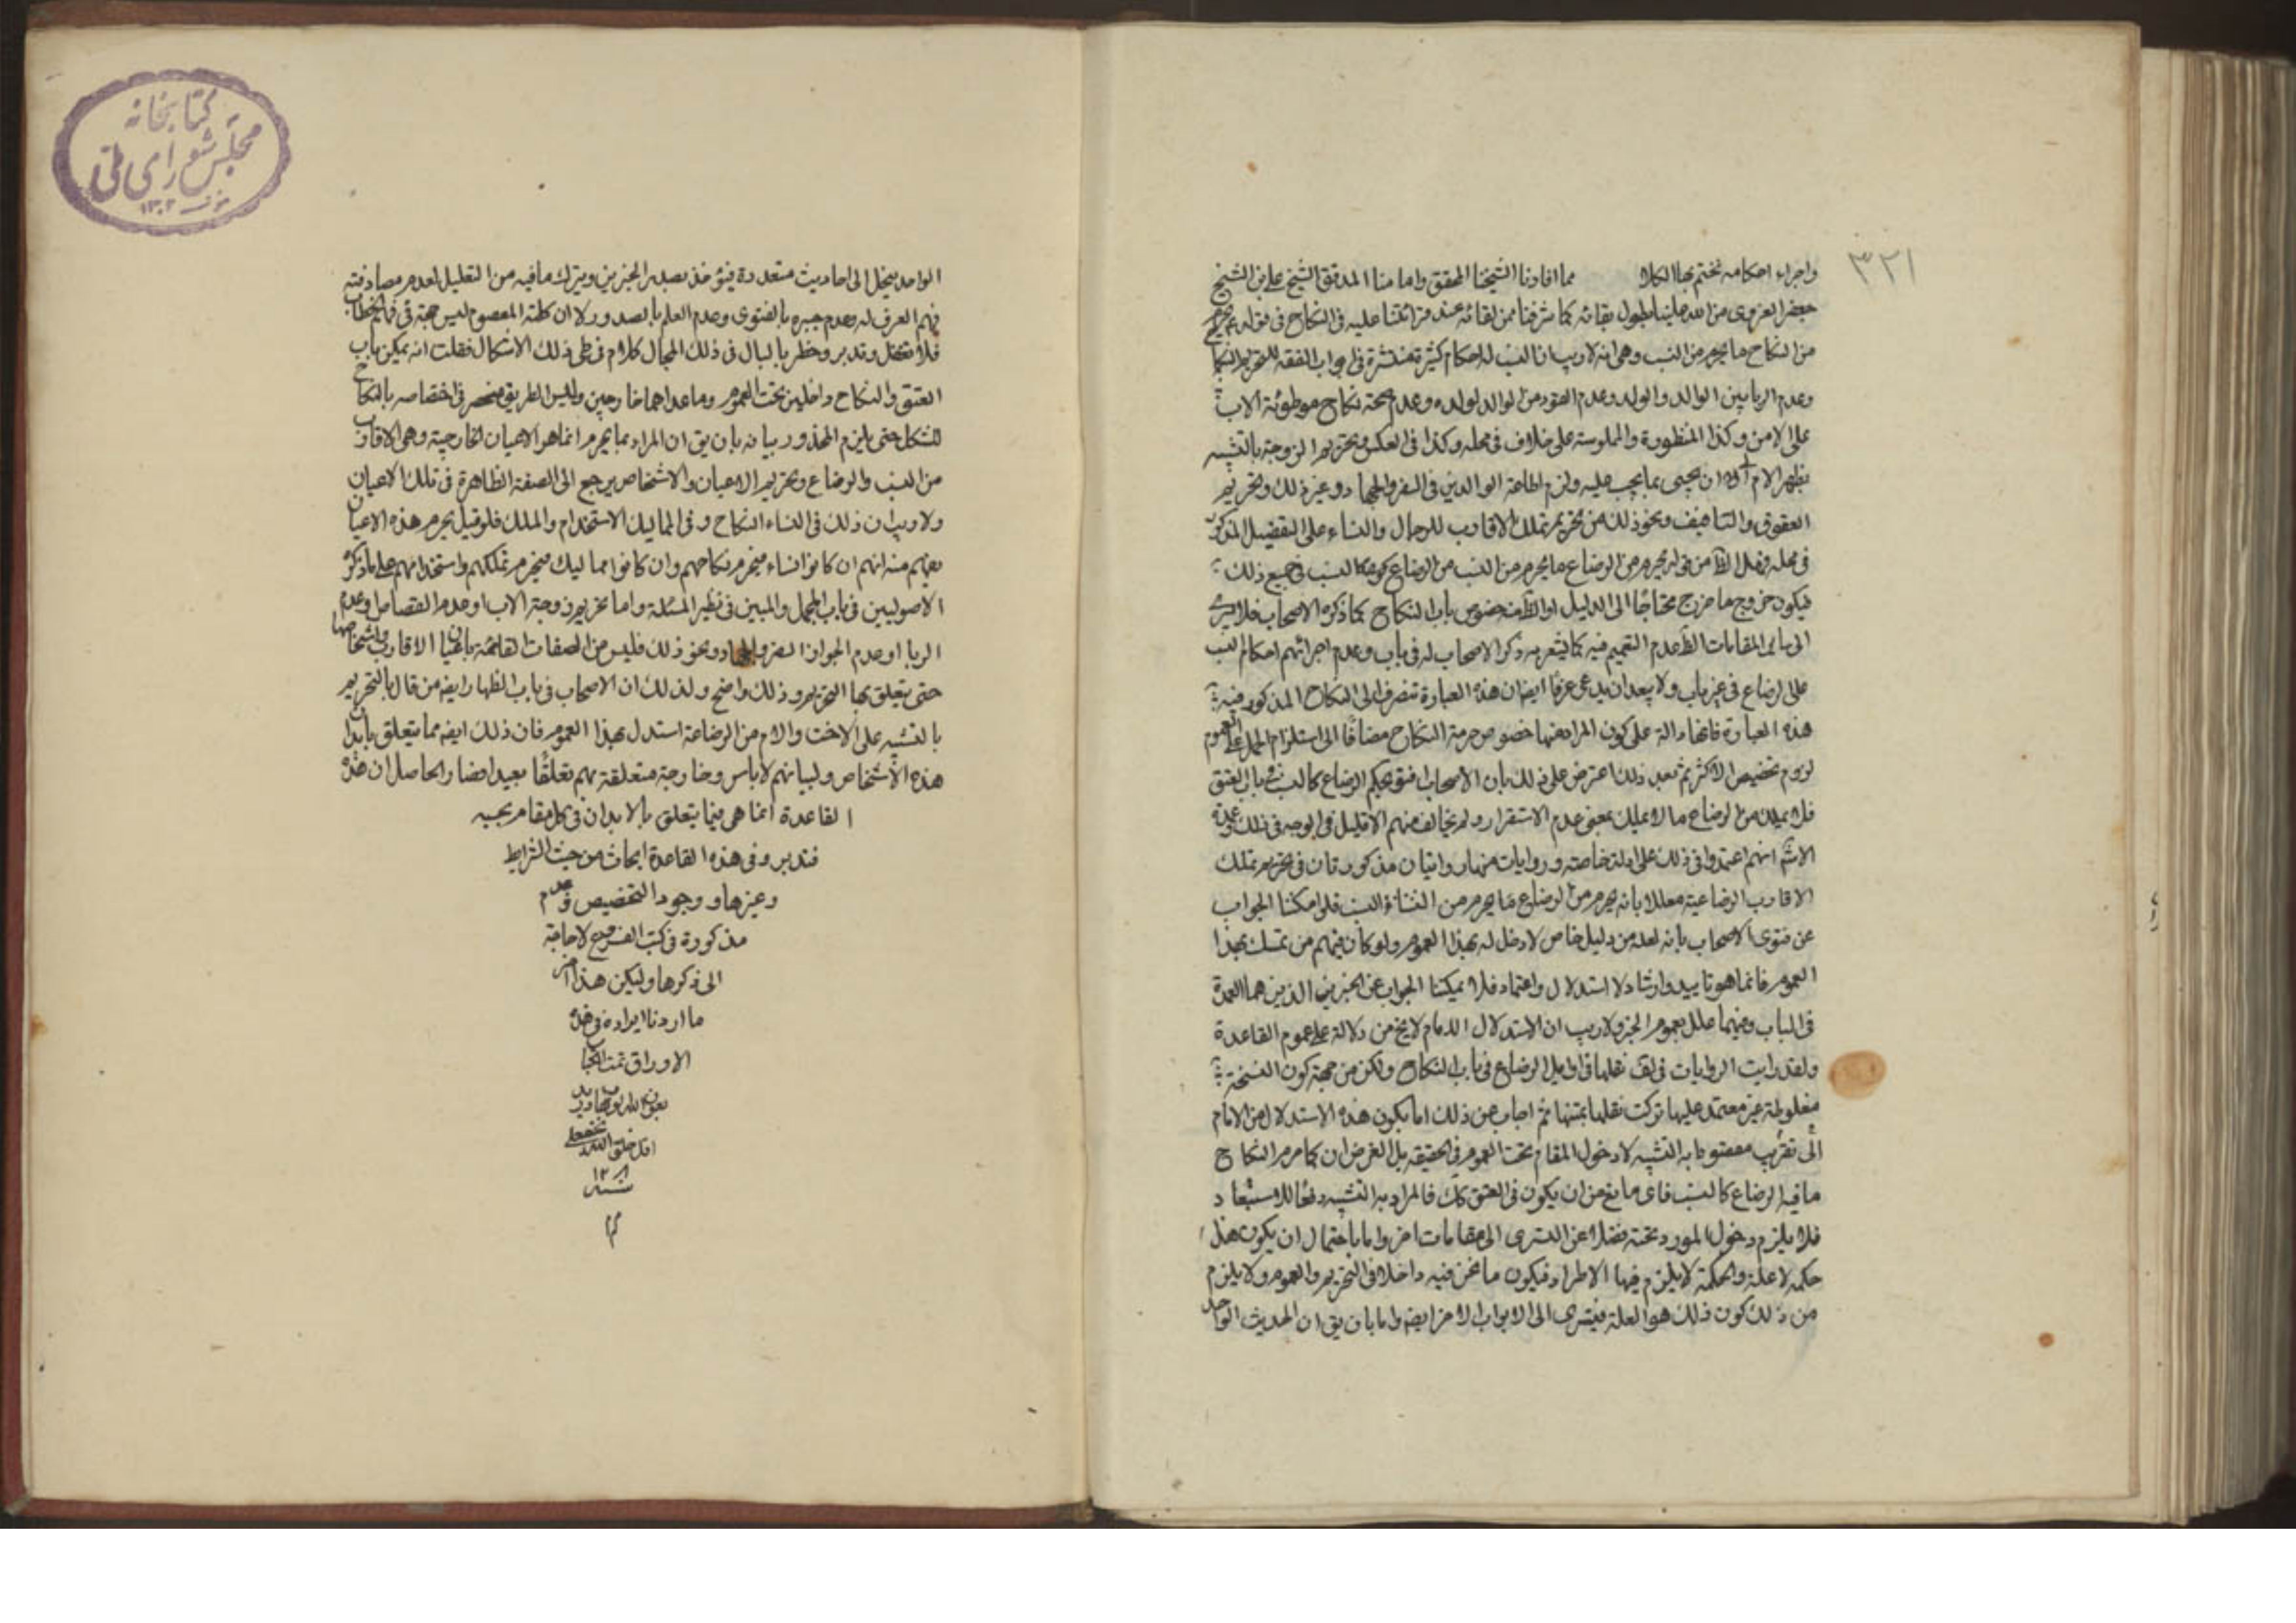 ٣٢١
واجراء احكامه نختم بها الكلام مما افادنا الشيخنا المحقق وامامنا المدقق الشيخ علي بن الشيخ
جعفر الغروى من الله علينا بطول بقائه كما شرفنا من لقائه عند قرائتنا عليه فى النكاح فى قوله يحرم
من النكاح ما يحرم من النسب وهى انه لاريب ان النسب له احكام كثيرة منتشرة فى ابواب الفقه كتحريم النكاح
وعدم الربا بين الوالد والولد وعدم القود من الوالد لولده وعدم صحة نكاح موطوئة الاب
على الابن وكذا المنظورة والملموسة على خلاف فى محله وكذا فى العكس وتحريم الزوجة بالتشبيه
بظهر الام ان يجيى بما يجب عليه ولزم اطاعة الوالدين فى السفر والجهاد وغير ذلك وتحريم
العقوق والتافيف ونحو ذلك من تحريم تملك الاقارب للرجال والنساء على التفصيل المذكور
فى محله فهل الظ من قوله يحرم من الرضاع ما يحرم من النسب من الرضاع كون كالنسب فى جميع ذلك
فيكون خروج ما خرج محتاجًا الى الدليل او الظ منه خصوص باب النكاح كما ذكره الاصحاب فلا يسرى
الى باقى المقامات الظ عدم التعميم فيه كما يشعر به ذكر الاصحاب له فى باب وعدم اجرائهم احكام النسب
على الرضاع فى غير باب ولا يبعد ان يدعى عرفا ايضا ان هذه العبارة تنصرف الى النكاح المذكور فيه
هذه العبارة فانها دالة على كون المراد منها خصوص حرمة النكاح مضافًا الى استلزام الحمل على العموم
لزوم تخصيص الاكثر ثم بعد ذلك اعترض على ذلك بان الاصحاب افتو بحكم الرضاع كالنسب فى باب العتق
فلا يملك من الرضاع ما لا يملك بمعنى عدم الاستقرار ولم يخالف منهم الا قليل فى الوجه فى ذلك وعدة
انهم اعتمدوا فى ذلك على ادلة خاصة وروايات منها روايتان مذكورتان فى تحريم تملك
الاقارب الرضاعية معللا بانه يحرم من الرضاع ما يحرم من النساء النسب فلو امكننا الجواب
عن فتوى الاصحاب بانه لعله من دليل خاص لا دخل له بهذا العموم ولو كان فيهم من تمسك بهذا
العموم فانما هو تاييد وارشاد لا استدلال واعتماد فلا يمكننا الجواب عن الخبرين الذين هما العمدة
فى الباب وفيهما علل بعموم الخبر ولا ريب ان الاستدلال الامام لا يخ من دلالة على عموم القاعدة
ولقد رايت الروايات فى لف نقلها فى اوايل الرضاع فى باب النكاح ولكن من جهة كون النسخة
مغلوطة غير معتمد عليها تركت نقلها بمتنها ثم اجاب عن ذلك اما بكون هذه الاستدلال من الامام
الى تقريب مقصوده بالتشبيه لا دخول المقام تحت العموم فى الحقيقه بل الغرض ان كما حرم النكاح
ما فيه الرضاع كالنسب فاى مانع من ان يكون فى العتق كك فالمراد به التشبيه دفعًا للاستبعاد
فلا يلزم دخول المورد تحته فضلا عن التسرى الى مقامات اخر واما باحتمال ان يكون هذا
حكمه لا علة والحكمة لا يلزم فيها الاطراد فيكون ما نحن فيه داخلا فى التحريم والعموم ولا يلزم
من ذلك كون ذلك هو العلة فيتسرى الى الابواب الاخر ايضه واما بان يق ان الحديث الواحد
كتابخانه
مجلس شورای ملی
١٣٠٢
الواحد ينحل الى احاديث متعددة فيؤخذ بصدر الخبرين ويترك ما فيه من التعليل لعدم مصادفته
فهم العرف له وعدم جبره بالفتوى وعدم العلم بالصدور لا ان كلمة المعصوم ليس حجة فى فهم الخطاب
فلا تغفل وتدبر وخطر بالبال فى ذلك المجال كلام فى طى ذلك الاشكال فقلت انه يمكن باب
العتق والنكاح داخلين تحت العموم وما عداهما خارجين وليس الطريق منحصر فى اختصاصه بالنكاح
للشكل حتى يلزم المحذور بيانه بان يق ان المراد بما يحرم انما هو الاعيان الخارجية وهى الاقارب
من النسب والرضاع وتحريم الاعيان والاشخاص يرجع الى الصفة الظاهرة فى تلك الاعيان
ولا ريب ان ذلك فى النساء النكاح وفى المماليك الاستخدام والملك فلو قيل يحرم هذه الاعيان
يفهم منه انهم ان كانوا نساء فيحرم نكاحهم وان كانوا مماليك فيحرم تملكهم واستخدامهم على ما ذكره
الاصوليين فى باب المجمل والمبين فى نظير المسئلة واما تحريم زوجة الاب او عدم القصاص وعدم
الربا او عدم الجواز السفر والجهاد ونحو ذلك فليس من الصفات القائمة باعيان الاقارب واشخاصها
حتى يتعلق بها التحريم وذلك واضح ولذلك ان الاصحاب فى باب الظهار ايضه من قال بالتحريم
بالتشبيه على الاخت والام من الرضاعة استدل بهذا العموم فان ذلك ايضه مما يتعلق بابدان
هذه الاشخاص ولبيانهم لاباس وخارجة متعلقة بهم تعلقًا بعيدا فضا والحاصل ان هذه
القاعدة انما هى فيما يتعلق بالابدان فى كل مقام بحسبه
فتدبر وفى هذه القاعدة ابحاث من حيث الشرايط
وغيرها ووجود التخصيص وعدم
مذكورة فى كتب الفروع لا حاجة
الى ذكرها وليكن هذا اخر
ما اردنا ايراده فى هذه
الاوراق تمت الكتاب
بعون الله
اقل خلق الله
سنه